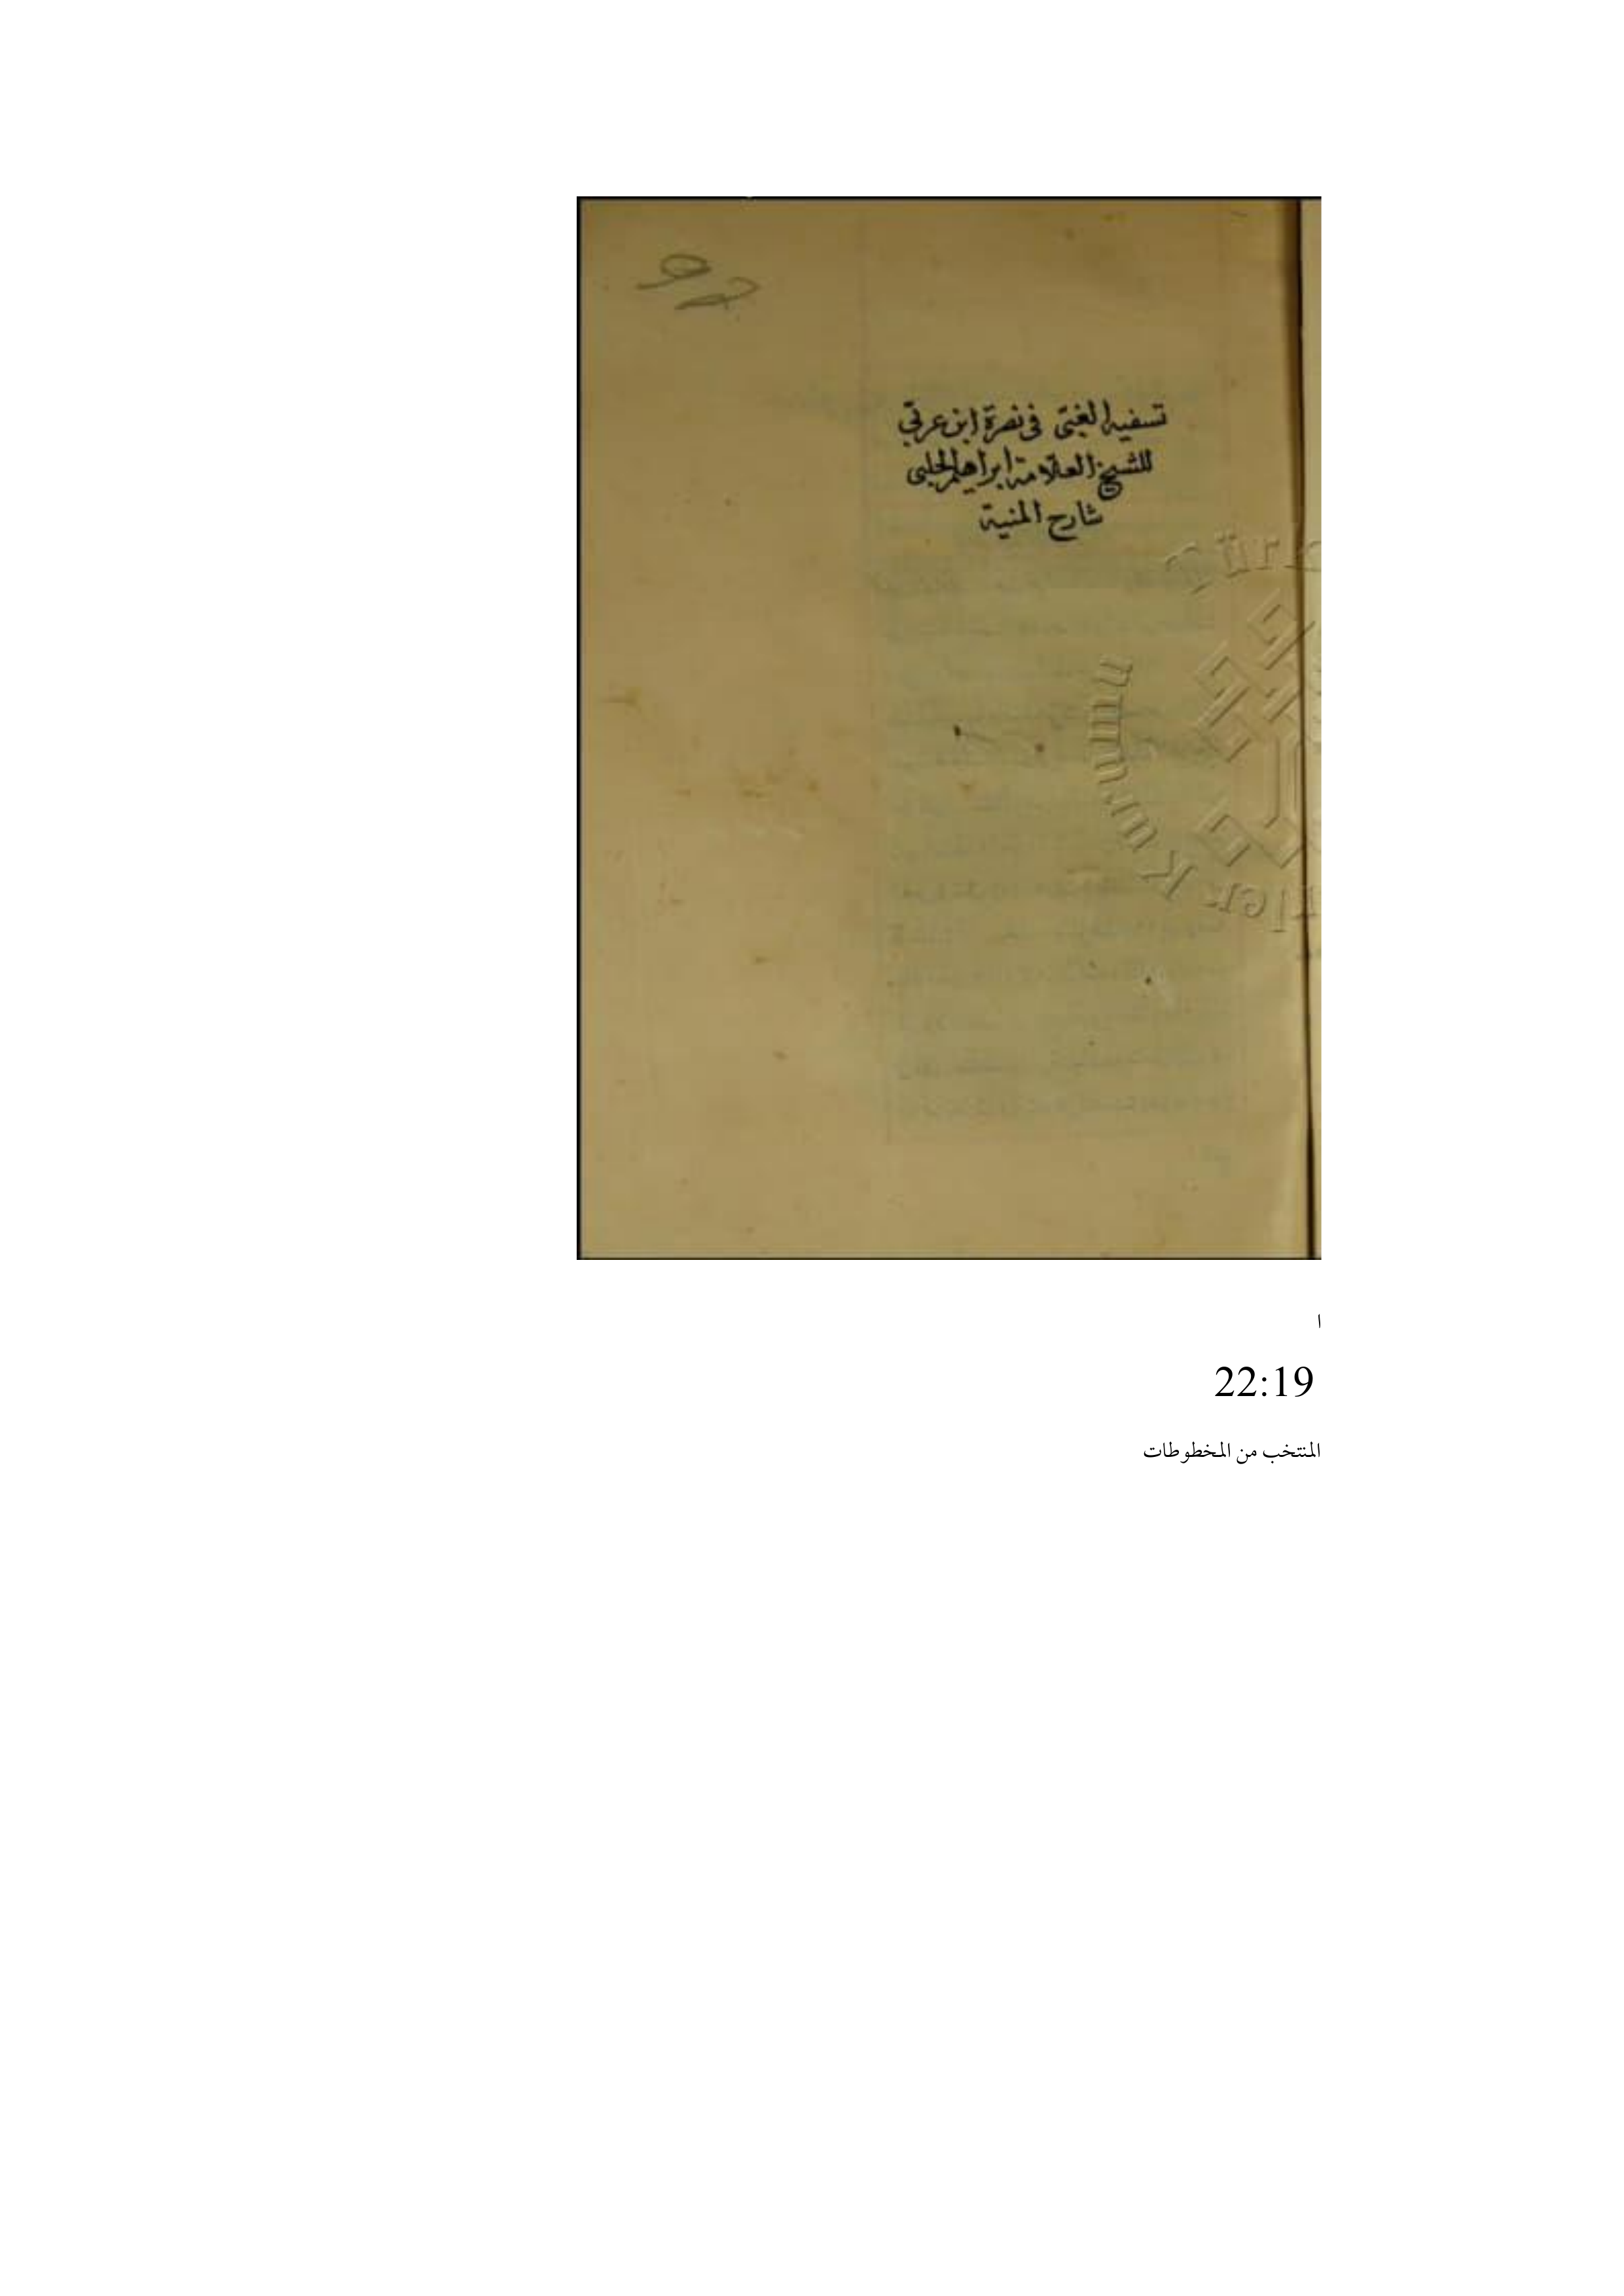 تسفيه الغبى فى نصرة ابن عربي
للشيخ العلامة ابراهيم الحلبى
شارح المنية
ا
22:19
المنتخب من المخطوطات